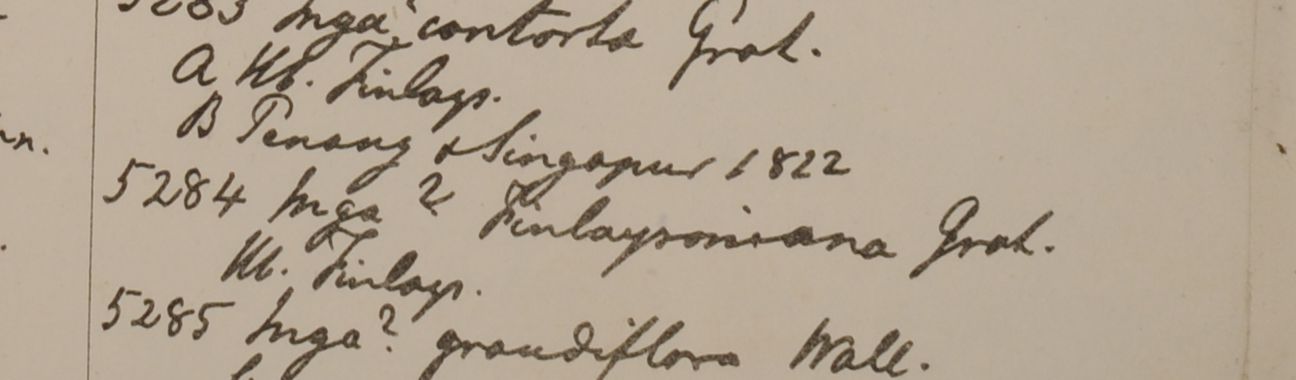 5283 Inga? contorta Grah.
A Hb. Finlays.
B Penang & Singapur 1822
5284 Inga? Finlaysoniana Grah.
Hb. Finlays.
5285 Inga? grandiflora Wall.